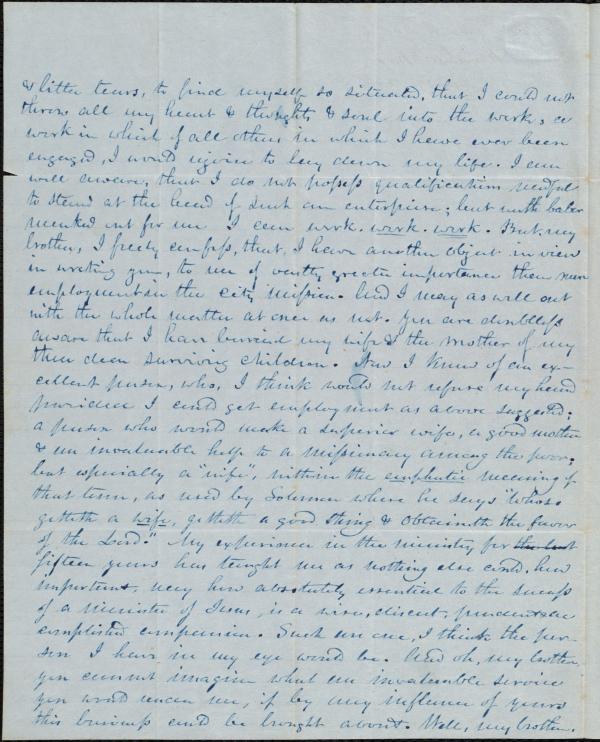 & bitter tears, to find myself so situated, that I could not
throw all my heart & thoughts & soul into the work; a
work in which of all others in which I have ever been
engaged, I would rejoice to lay down my life. I am
well aware, that I do not possess qualifications needful
to stand at the head of such an enterprise; but with labor
marked out for me I can work. work. work. But, my
brother, I freely confess, that, I have another object in view
in writing you, to me of vastly greater importance than mere
employment in the city mission. And I may as well out
with the whole matter at once as not. You are doubtless
aware that I have buried my wife & the mother of my
three dear surviving children. Now I know of an ex-
cellent person, who, I think would not refuse my hand
provided I could get employment as above suggested;
a person who would make a superior wife, a good mother
& an invaluable help to a missionary among the poor;
but especially a "wife", within the emphatic meaning of
that term, as used by Solomon where he says "whoso
getteth a wife, getteth a good thing & obtaineth the favor
of the Lord." My experience in the ministry for the last
fifteen years has taught me as nothing else could, how
important, nay how absolutely essential to the success
of a minister of Jesus, is a wise, discreet, prudent & ac
complished companion. Such an one, I think, the per-
son I have in my eye would be. And oh, my brother,
you cannot imagine what an invaluable service
you would render me, if by any influence of yours
this business could be brought about. Well, my brother,